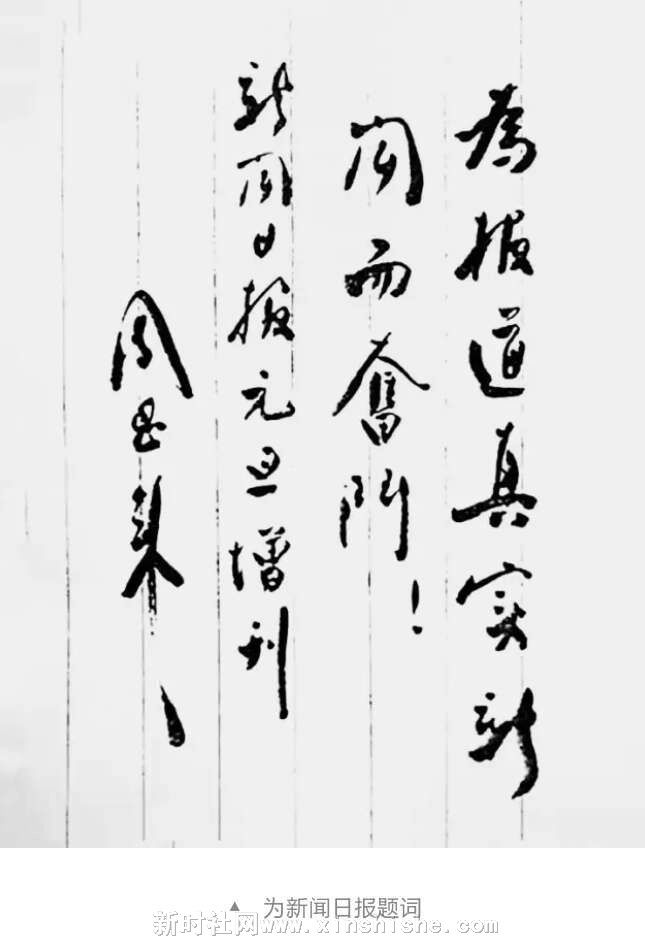 為报道真实新
闻而奮鬥！
新闻日报元旦增刊
周恩来
▲ 为新闻日报题词
新时社网www.xinshishe.com